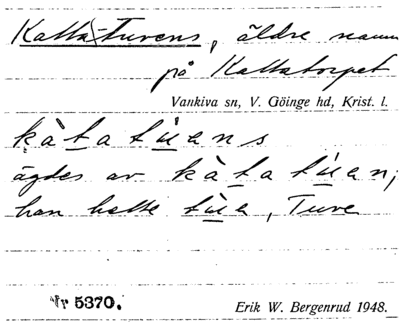 Katta-Turens, äldre namn
på Kattatorpet
Vankiva sn, V. Göinge hd, Krist. l.
kàta túans
ägdes av kàta túan;
han hette tùa, Ture
Nr 5370.
Erik W. Bergenrud 1948.